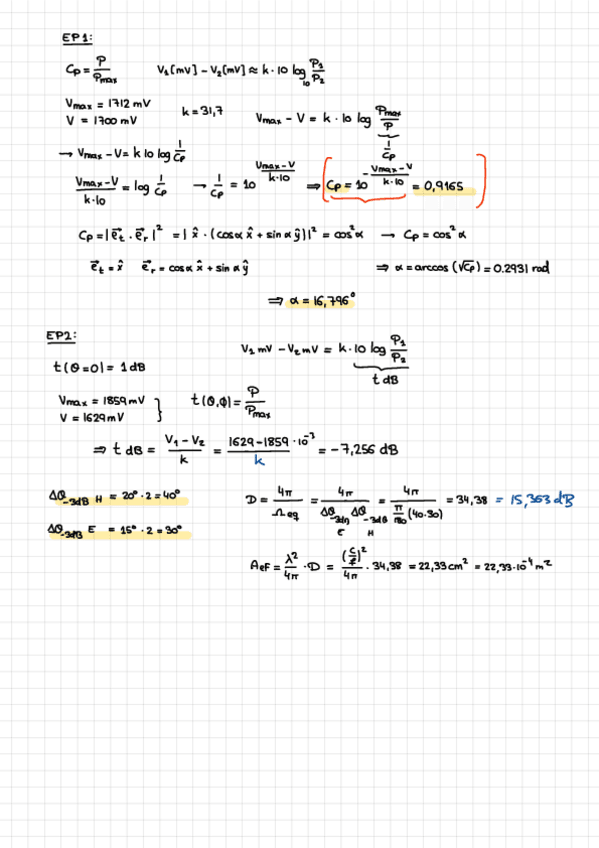 EP1:
Cp = P/Pmax    V₁[mV] - V₂[mV] ≈ k · 10 log₁₀ P₁/P₂
Vmax = 1712 mV    k = 31,7    Vmax - V = k · 10 log Pmax/P
V = 1700 mV
1/Cp
→ Vmax - V = k 10 log 1/Cp
Vmax - V/k·10 = log 1/Cp → 1/Cp = 10^(Vmax-V/k·10) ⇒ Cp = 10^(-Vmax-V/k·10) = 0,9165
Cp = |e⃗t · e⃗r|² = |x̂ · (cosα x̂ + sinα ŷ)|² = cos²α → Cp = cos²α
e⃗t = x̂    e⃗r = cosα x̂ + sinα ŷ    ⇒ α = arccos(√Cp) = 0.2931 rad
⇒ α = 16,796°
EP2:
V₁ mV - V₂ mV = k · 10 log P₁/P₂
t(θ=0) = 1 dB    t dB
Vmax = 1859 mV    t(θ,ϕ) = P/Pmax
V = 1629 mV
⇒ t dB = V₁ - V₂/k = 1629 - 1859 · 10⁻³/k = -7,256 dB
Δθ-3dB H = 20° · 2 = 40°    D = 4π/Ωeq = 4π/Δθ-3dB E Δθ-3dB H = 4π/π/180 (40·30) = 34,38 = 15,363 dB
Δθ-3dB E = 15° · 2 = 30°
Aef = λ²/4π · D = (c/f)²/4π · 34,38 = 22,33 cm² = 22,33·10⁻⁴ m²